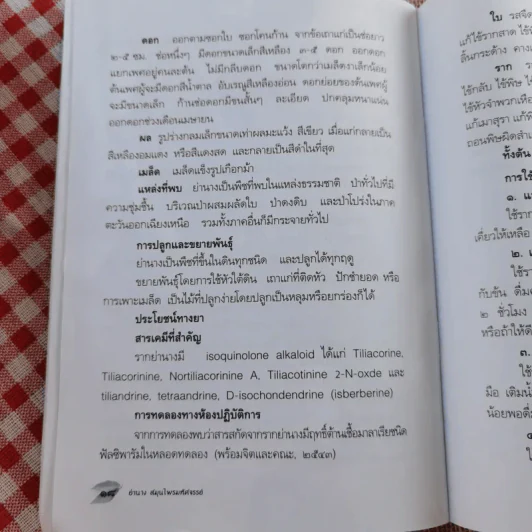 ดอก ออกตามซอกใบ ซอกโคนก้าน จากข้อเถาแก่เป็นช่อยาว
๒-๕ ซม. ช่อหนึ่งๆ มีดอกขนาดเล็กสีเหลือง ๓-๕ ดอก ออกดอก
แยกเพศอยู่คนละต้น ไม่มีกลีบดอก ขนาดโตกว่าเมล็ดงาเล็กน้อย
ต้นเพศผู้จะมีดอกสีน้ำตาล อับเรณูสีเหลืองอ่อน ดอกย่อยของต้นเพศผู้
จะมีขนาดเล็ก ก้านช่อดอกมีขนสั้นๆ ละเอียด ปกคลุมหนาแน่น
ออกดอกช่วงเดือนเมษายน
ผล รูปร่างกลมเล็กขนาดเท่าผลมะแว้ง สีเขียว เมื่อแก่กลายเป็น
สีเหลืองอมแดง หรือสีแดงสด และกลายเป็นสีดำในที่สุด
เมล็ด เมล็ดแข็งรูปเกือกม้า
แหล่งที่พบ ย่านางเป็นพืชที่พบในแหล่งธรรมชาติ ป่าทั่วไปที่มี
ความชุ่มชื้น บริเวณป่าผสมผลัดใบ ป่าดงดิบ และป่าโปร่งในภาค
ตะวันออกเฉียงเหนือ รวมทั้งภาคอื่นก็มีกระจายทั่วไป
การปลูกและขยายพันธุ์
ย่านางเป็นพืชที่ขึ้นในดินทุกชนิด และปลูกได้ทุกฤดู
ขยายพันธุ์โดยการใช้หัวใต้ดิน เถาแก่ที่ติดหัว ปักชำยอด หรือ
การเพาะเมล็ด เป็นไม้ที่ปลูกง่ายโดยปลูกเป็นหลุมหรือยกร่องก็ได้
ประโยชน์ทางยา
สารเคมีที่สำคัญ
รากย่านางมี isoquinolone alkaloid ได้แก่ Tiliacorine,
Tiliacorinine, Nortiliacorinine A, Tiliacotinine 2-N-oxde และ
tiliandrine, tetraandrine, D-isochondendrine (isberberine)
การทดลองทางห้องปฏิบัติการ
จากการทดลองพบว่าสารสกัดจากรากย่านางมีฤทธิ์ต้านเชื้อมาลาเรียชนิด
ฟัลซิพารัมในหลอดทดลอง (พร้อมจิตและคณะ, ๒๕๔๓)
ย่านาง สมุนไพรมหัศจรรย์
ใบ รสจืด
แก้ไข้รากสาด ไข้
ลิ้นกระด้าง คาง
ราก
ไข้กลับ ไข้พิษ
ไข้หัวจำพวกเหือ
แก้เมาสุรา
ถอนพิษผิดสำแ
ทั้งต้น
การใช้
๑.
ใช้ราก
เคี่ยวให้เหลือ
๒.
ใช้รา
กับขัน ดื่ม
๒ ชั่วโมง
หรือถ้าให้ดี
๓.
ใช้
มือ เติมน้
น้อยพอดื่